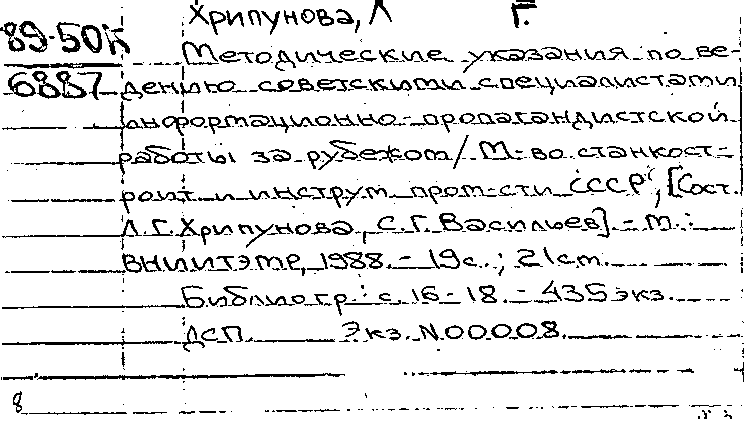 Хрипунова, Л Г.
89-50к Методические указания по ве-
6887 дению советскими специалистами
информационно-пропагандистской
работы за рубежом / М-во станкост-
роит. и инструм. пром-сти СССР; [Сост.
Л.Г. Хрипунова, С.Г. Васильев]. - М.:
ВНИИТЭМР, 1988. - 19с.; 21см.
Библиогр.: с. 16-18. - 435 экз.
ДСП. Экз. N00008.
8